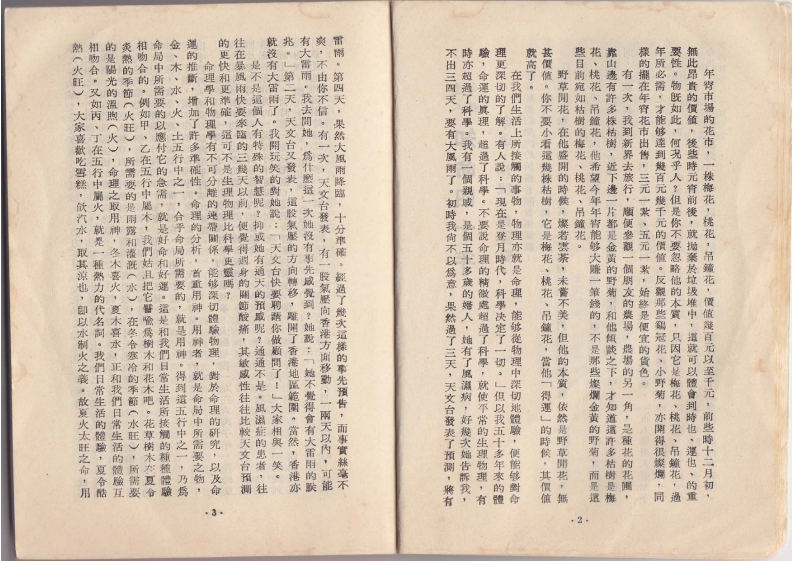 年宵市場的花市，一株梅花，桃花，吊鐘花，價值幾百元以至千元，前些時十二月初，
無此昂貴的價值，後些時元宵前後，就拋棄於垃圾堆中，這就可以體會到時也、運也、的重
要性。物既如此，何況乎人？但是你不要忽略他的本質，只因它是梅花、桃花、吊鐘花，過
年所必需，才能够達到幾百元幾千元的價值。反觀那些鷄冠花，小野菊，亦開得很燦爛，同
樣的擺在年宵花市出售，三元一紮、五元一紮，始終是便宜的貨色。
有一次，我到新界去旅行，順便參觀一個朋友的農塲，農塲的另一角，是種花的花圃，
靠山邊有許多株枯樹，近下邊一片都是金黃的野菊，和他傾談之下，才知道這許多枯樹是梅
花、桃花、吊鐘花，他希望今年年宵能够大賺一筆錢的，不是那些燦爛金黃的野菊，而是這
些目前宛如枯樹的梅花、桃花、吊鐘花。
野草開花，在他盛開的時候，燦若雲荼，未嘗不美，但他的本質，依然是野草開花，無
甚價值。你不要小看這幾株枯樹，它是梅花、桃花、吊鐘花，當他「得運」的時候，其價值
就高了。
在我們生活上所接觸的事物，物理亦就是命理，能够從物理中深切地體驗，便能够對命
理更深切的了解。有人說：「現在是登月時代，科學决定了一切。」但以我五十多年來的體
驗，命運的眞理，超過了科學。不要說命理的精微處超過了科學，就使不常的生理物理，有
時亦超過了科學。我有一個親戚，是個五十多歲的婦人，她有了風濕病，好幾次她告訴我，
不出三四天，要有大風雨了。初時我尙不以爲意，果然過了三天，天文台發表了預測，將有
·2·
雷雨。第四天，果然大風雨降臨，十分準確。經過了幾次這樣的事先預告，而事實絲毫不
爽，不由你不信。有一次，天文台發表，有一股氣壓向香港方面移動，一兩天以內，可能
有大雷雨。我去問她，爲什麽這一次她沒有事先感覺到？她說：「她不覺得會有大雷雨的朕
兆。」第二天，天文台又發表，這股氣壓的方向轉移，離開了香港地區範圍。當然，香港亦
就沒有大雷雨了。我開玩笑的對她說：「天文台快要聘請你做顧問了！」大家相與一笑。
是不是這個人有特殊的智慧呢？抑或她有通天的預感呢？通通不是。風濕症的患者，往
往在暴風雨快要來臨的三幾天以前，便覺得週身的關節酸痛，其敏感性往往比較天文台預測
的更快和更準確，這可不是生理物理比科學更靈嗎？
命理學和物理學有不可分離的連帶關係，能够深切體驗物理，對於命理的研究，以及命
運的推斷，增加了許多準確性。命理的分析，首重用神。用神者，就是命局中所需要之物，
金、木、水、火、土五行中之一，合乎命局所需要的，就是用神。得到這五行中之一，乃爲
命局中所需要的以應付它的急需，就是好命和好運。這是和我們日常生活所接觸的種種體驗
相吻合的。例如甲、乙在五行中屬木，我們姑且把它譬喻爲樹木和花木吧。花草樹木在夏令
炎熱的季節（火旺），所需要的是雨露和灌溉（水），在冬令寒冷的季節（水旺），所需要
的是陽光的溫煦（火），命理之取用神，冬木喜火，夏木喜水，正和我們日常生活的體驗互
相吻合。又如丙、丁在五行中屬火，就是一種熱力的代名詞。我們日常生活的體驗，夏令酷
熱（火旺），大家喜歡吃雪糕，飲汽水，取其涼也，卽以水制火之義。故夏火太旺之命，用
·3·